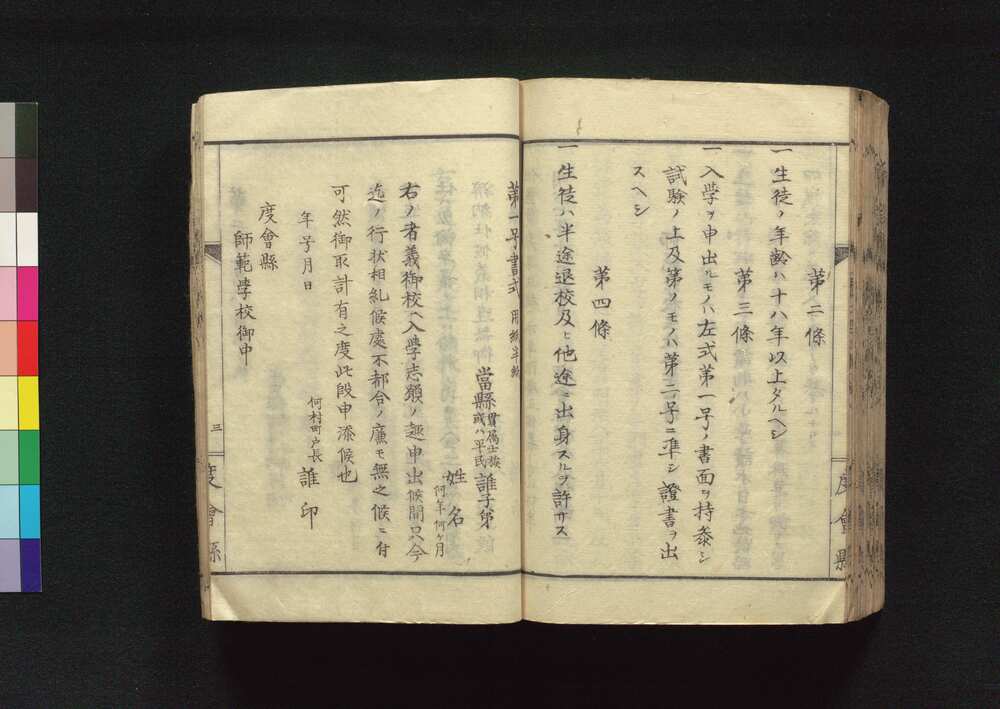 第二條
一生徒ノ年齡ハ十八年以上タルヘシ
第三條
一入學ヲ申出ルモノハ左式第一号ノ書面ヲ持參シ
試驗ノ上及第ノモノハ第二号ニ準シ證書ヲ出
スヘシ
第四條
一生徒ハ半途退校及ヒ他途ニ出身スルヲ許サス
第一号書式 用紙半紙
當縣貫属士族或ハ平民誰子弟
姓名
何年何ヶ月
右ノ者義御校ヘ入學志願ノ趣申出候間只今
迄ノ行状相糺候處不都合ノ廉モ無之候ニ付
可然御取計有之度此段申添候也
何村町戸長 誰印
年号月日
度會縣
師範學校御中
三
度會縣
度會縣